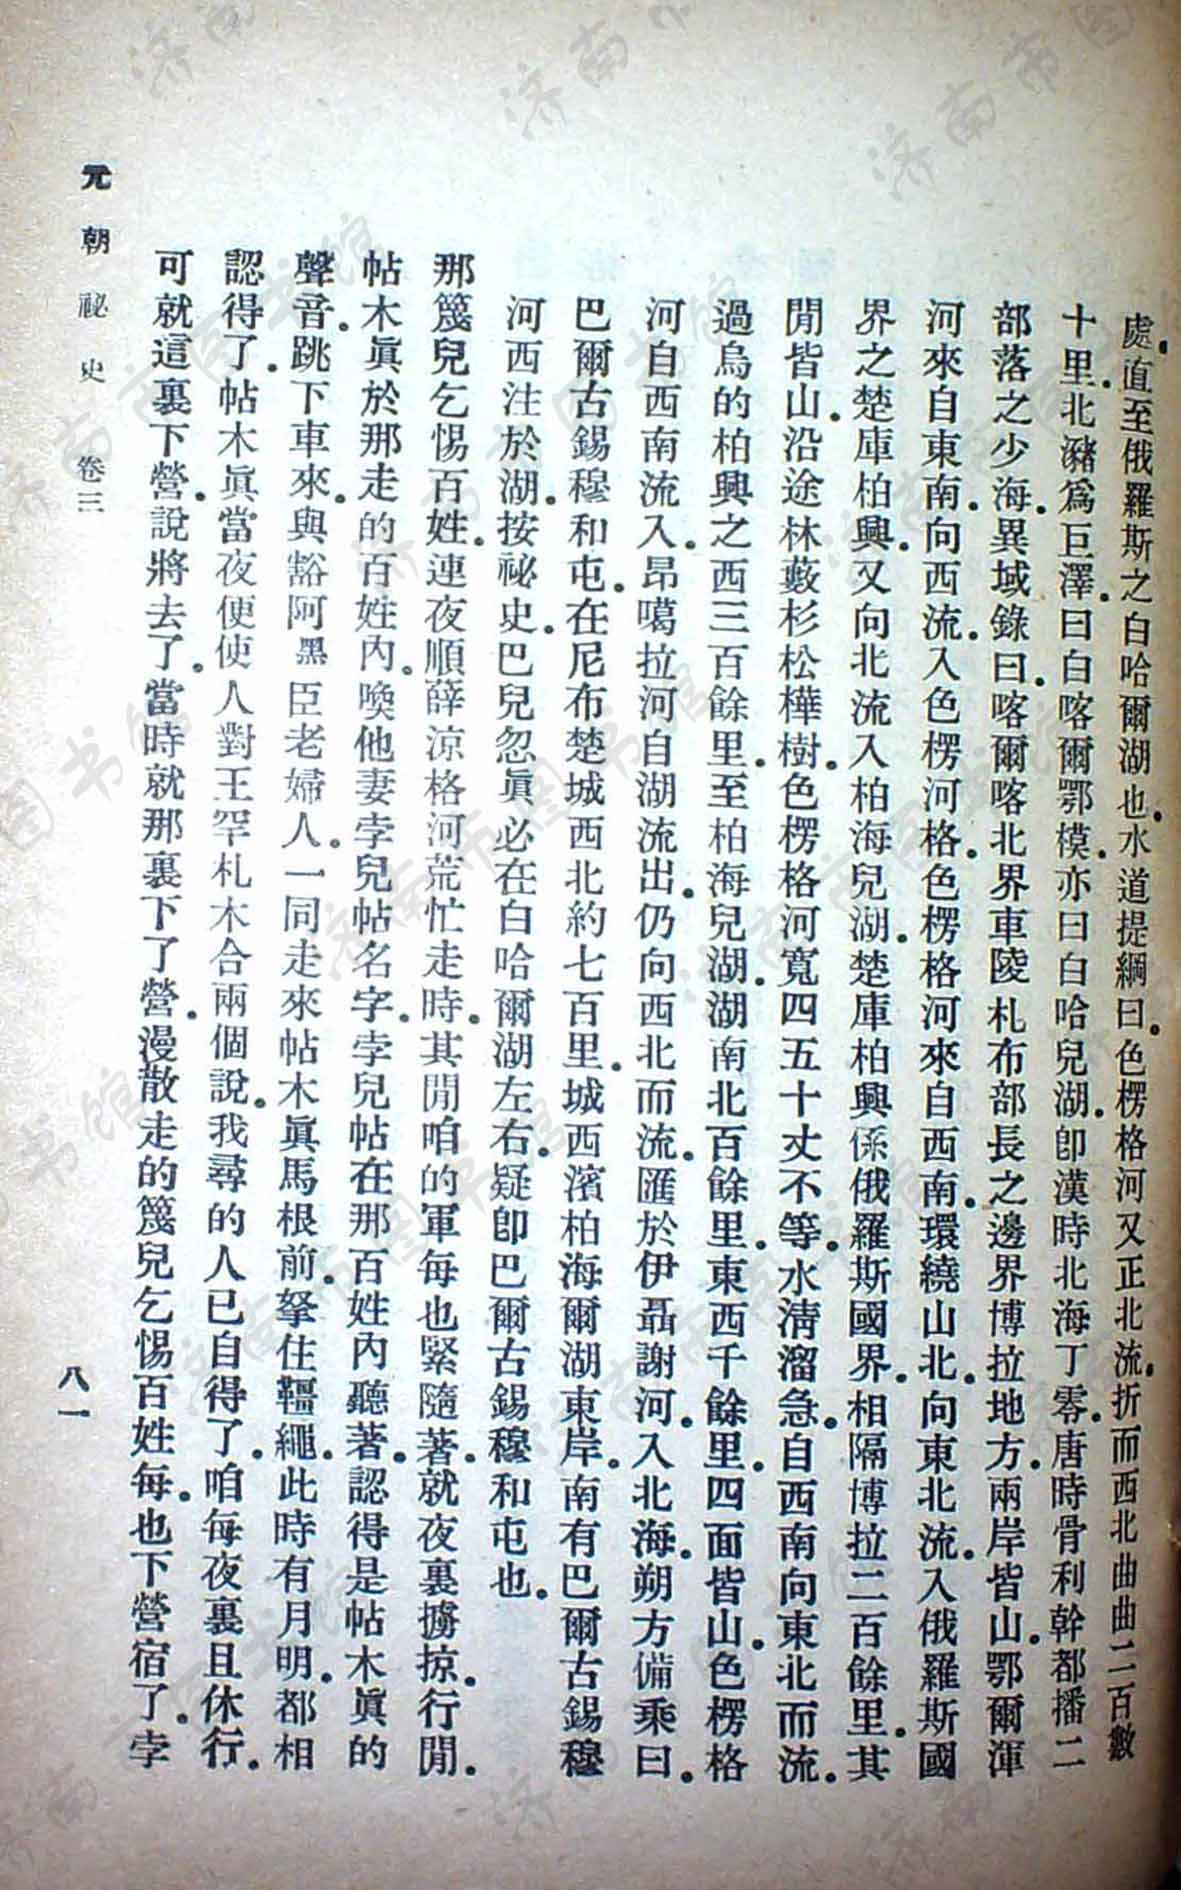 處直至俄羅斯之白哈爾湖也水道提綱曰色楞格河又正北流折而西北曲曲二百數
十里北瀦爲巨澤曰白喀爾鄂模亦曰白哈兒湖卽漢時北海丁零唐時骨利幹都播二
部落之少海異域錄曰喀爾喀北界車陵札布部長之邊界博拉地方兩岸皆山鄂爾渾
河來自東南向西流入色楞河格色楞格河來自西南環繞山北向東北流入俄羅斯國
界之楚庫柏興又向北流入柏海兒湖楚庫柏興係俄羅斯國界相隔博拉二百餘里其
閒皆山沿途林藪杉松樺樹色楞格河寬四五十丈不等水淸溜急自西南向東北而流
過烏的柏興之西三百餘里至柏海兒湖湖南北百餘里東西千餘里四面皆山色楞格
河自西南流入昂噶拉河自湖流出仍向西北而流匯於伊聶謝河入北海朔方備乘曰
巴爾古錫穆和屯在尼布楚城西北約七百里城西濱柏海爾湖東岸南有巴爾古錫穆
河西注於湖按祕史巴兒忽眞必在白哈爾湖左右疑卽巴爾古錫穆和屯也
那篾兒乞惕百姓連夜順薛涼格河荒忙走時其閒咱的軍每也緊隨著就夜裏擄掠行閒
帖木眞於那走的百姓內喚他妻孛兒帖名字孛兒帖在那百姓內聽著認得是帖木眞的
聲音跳下車來與豁阿黑臣老婦人一同走來帖木眞馬根前拏住韁繩此時有月明都相
認得了帖木眞當夜便使人對王罕札木合兩個說我尋的人已自得了咱每夜裏且休行
可就這裏下營說將去了當時就那裏下了營漫散走的篾兒乞惕百姓每也下營宿了孛
元朝祕史 卷三
八一